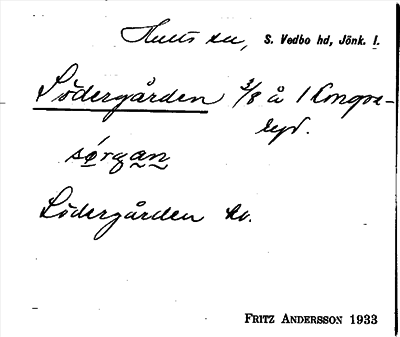 Hults sn, S. Vedbo hd, Jönk. l.
Södergården 3/8 å 1 Kongs-
legd.
sö́rgan
Södergården ko.
FRITZ ANDERSSON 1933